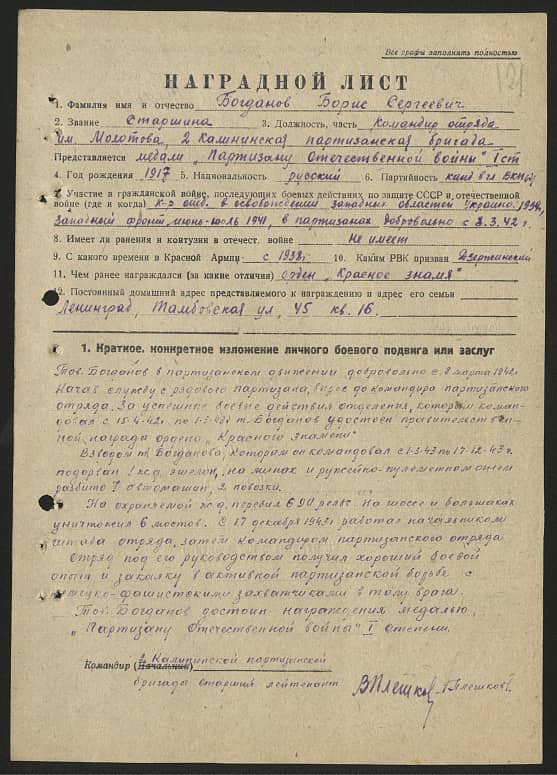 Все графы заполнять полностью
121
НАГРАДНОЙ ЛИСТ
1. Фамилия имя и отчество Богданов Борис Сергеевич
2. Звание Старшина 3. Должность, часть Командир отряда
им. Молотова, 2 Калининская партизанская бригада
Представляется медали „Партизану Отечественной войны" I ст
4. Год рождения 1917 5. Национальность русский 6. Партийность канд вл. ВКП(б)
7. Участие в гражданской войне, последующих боевых действиях по защите СССР и отечественной
войне (где и когда) к-р отд. в освобождении западных областей Украины. 1939г.
Западный фронт июнь-июль 1941, в партизанах добровольно с 8.3.42 г.
8. Имеет ли ранения и контузии в отечест. войне Не имеет
9. С какого времени в Красной Армии с 1938г. 10. Каким РВК призван Дзержинский
11. Чем ранее награждался (за какие отличия) орден „Красное знамя"
12. Постоянный домашний адрес представляемого к награждению и адрес его семьи
Ленинград, Тамбовская ул, 45 кв. 16.
1. Краткое, конкретное изложение личного боевого подвига или заслуг
Тов. Богданов в партизанском движении добровольно с 8 марта 1942г.
Начав службу с рядового партизана, вырос до командира партизанского
отряда. За успешные боевые действия отделения, которым коман-
довал с 15.4-42г. по 1-3-43г т. Богданов удостоен правительствен-
ной награды ордена „Красного Знамени"
Взводом т. Богданова, которым он командовал с 1-3-43 по 17-12-43 г.
подорван 1 ж.д. эшелон, на минах и ружейно-пулеметном огнем
разбито 7 автомашин, 2 повозки.
На охраняемой ж.д. перебил 690 рельс. На шоссе и большаках
уничтожил 6 мостов. С 17 декабря 1943г. работал начальником
штаба отряда, затем командиром партизанского отряда.
Отряд под его руководством получил хороший боевой
опыт и закалку в активной партизанской борьбе с
немецко-фашистскими захватчиками в тылу врага.
Тов. Богданов достоин награждения медалью
„Партизану Отечественной войны" I степени.
Командир (Начальник) 2 Калининской партизанской
бригады старший лейтенант ВПлешков /Плешков/.